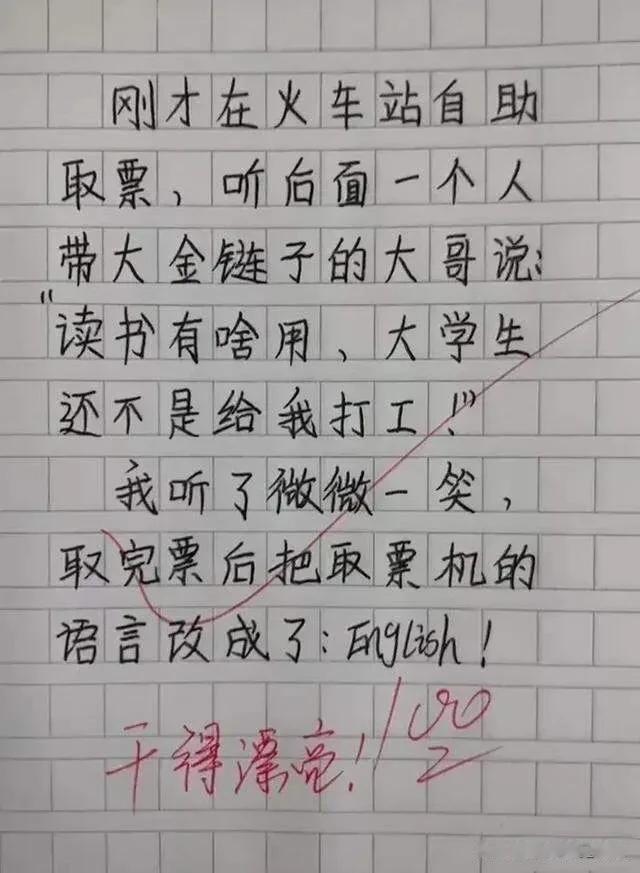 刚才在火车站自助
取票，听后面一个人
带大金链子的大哥说：
“读书有啥用、大学生
还不是给我打工！”
我听了微微一笑，
取完票后把取票机的
语言改成了：English！
干得漂亮！100